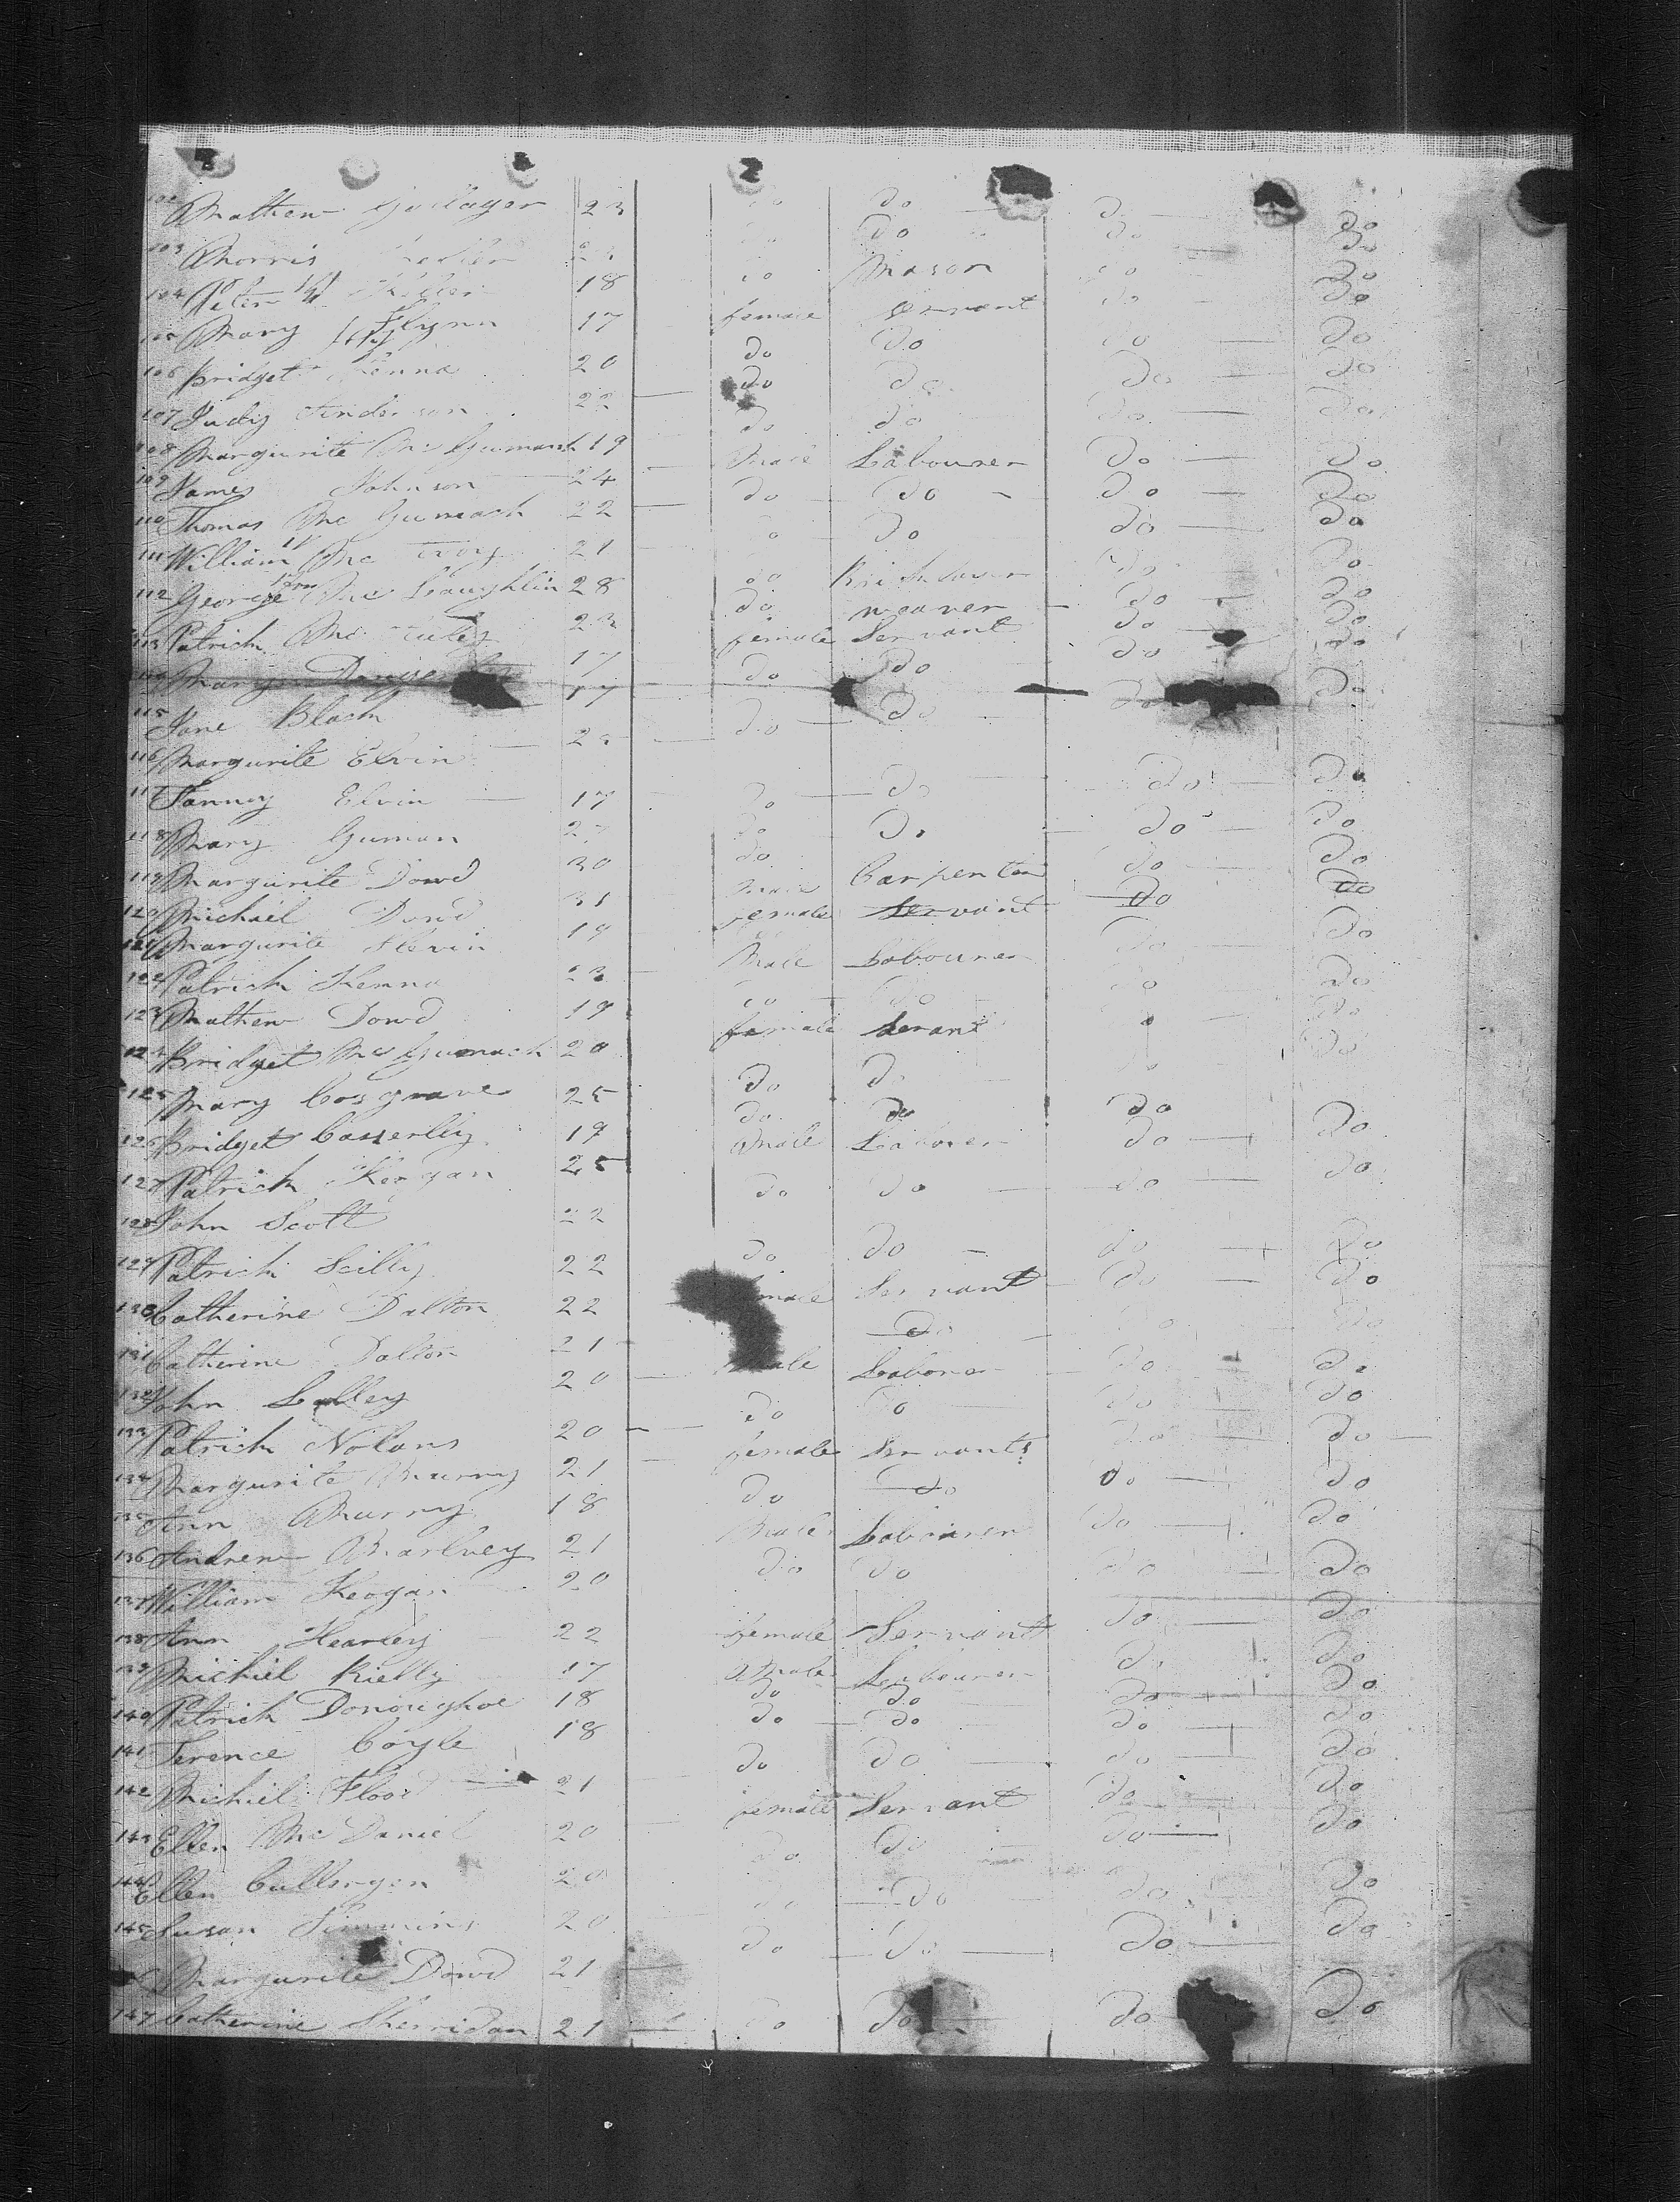 Mathew Gollager 23 do do do do
103 Morris do do do
104 Peter 18 do Mason do do
105 Mary Flynn 17 female servant do do
106 Bridget Kenna 20 do do do do
107 Judy Anderson 22 do do do do
108 Margurite Mc Gumach 19 do do do do
109 James Johnson 24 Male Labourer do do
110 Thomas Mc Gumach 22 do do do do
111 William Mc 21 do do do do
112 George Mc Laughlin 28 do do do
113 Patrick Mc 23 do weaver do do
Mary 17 female Servant do do
115 Jane Black 17 do do do do
116 Margurite Elvin do do
117 Fanney Elvin 17 do do do do
118 Mary Guman do do do do
119 Margurite Dowd 30 do do do
120 Michael Dowd 31 Male Carpenter do do
121 Margurite Slevin 19 female Servant do do
122 Patrick Kenna 23 Male Labourer do do
123 Mathew Dowd 19 do do do
124 Bridget Mc Gumach 20 female Serant do
125 Mary Cosgrave 25 do do
126 Bridget Casserlly 19 do do do do
127 Patrick Keogan 25 Male Labourer do do
128 John Scott 22 do do do
129 Patrick Scilly 22 do do do do
130 Catherine Dalton 22 Servant do do
131 Catherine Dalton 21 do do do
132 John Lalley 20 Labourer do do
133 Patrick Nolans 20 do do do do
134 Margurite Murry 21 female Servants do do
135 Ann Murry 18 do do do do
136 Andrew Marlvey 21 Male Labourer do do
137 William Keogan 20 do do do do
138 Ann Hearley 22 female Servants do do
139 Michiel Rielly 17 Male Labourer do do
140 Patrick Donoughoe 18 do do do do
141 Terence Coyle 18 do do do do
142 Michiel Flood 21 do do do do
143 Ellen Mc Daniel 20 female Servant do do
144 Ellen Callergen 20 do do do do
145 Susan Simmins 20 do do do do
Margurite Dowd 21 do do do do
147 Catherine Sherridan 21 do do do do